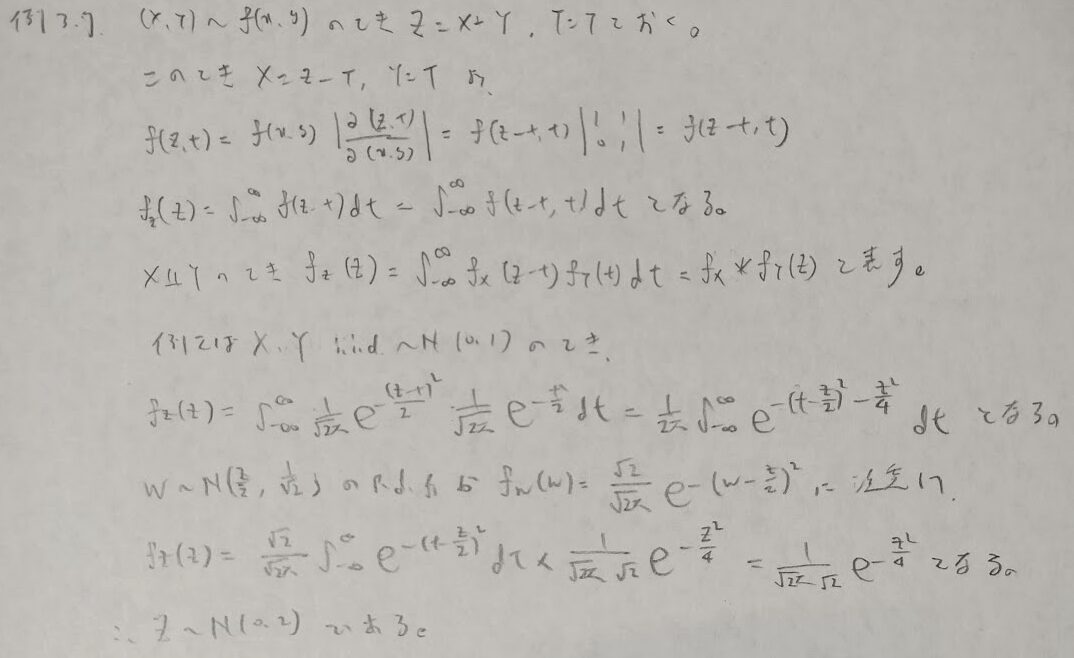 例3.7. (X,Y)~f(x,y) のとき Z=X+Y, T=Y とおく。
このとき X=Z-T, Y=T より、
f(z,t)= f(x,y) |∂(z,t)/∂(x,y)| = f(z-t,t) |1 1 0 1| = f(z-t,t)
f_z(z)= ∫_{-∞}^{∞} f(z,t)dt = ∫_{-∞}^{∞} f(z-t,t)dt となる。
X⫫Y のとき f_z(z)= ∫_{-∞}^{∞} f_X(z-t)f_Y(t)dt = f_X*f_Y(z) と表す。
例えば X,Y i.i.d ~N(0,1) のとき、
f_z(z)= ∫_{-∞}^{∞} 1/√2π e^{-(z-t)²/2} · 1/√2π e^{-t²/2} dt = 1/2π ∫_{-∞}^{∞} e^{-(t-z/2)²-z²/4} dt となる。
W~N(z/2, 1/√2) の p.d.f は f_w(w)= √2/√2π e^{-(w-z/2)²} に注意して、
f_z(z)= √2/√2π ∫_{-∞}^{∞} e^{-(t-z/2)²} dt × 1/√2π√2 e^{-z²/4} = 1/√2π√2 e^{-z²/4} となる。
∴ Z~N(0,2) である。